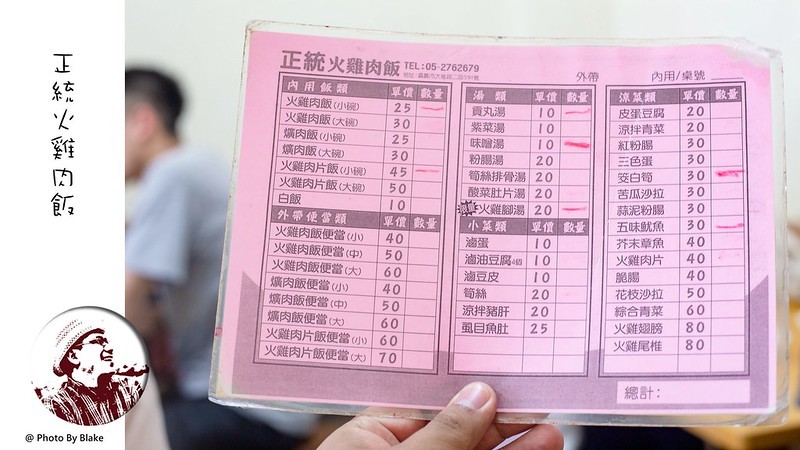 正統火雞肉飯
正統火雞肉飯 TEL:05-2762679
外帶 內用/桌號
內用飯類 單價 數量
火雞肉飯(小碗) 25
火雞肉飯(大碗) 30
爌肉飯(小碗) 25
爌肉飯(大碗) 30
火雞肉片飯(小碗) 45
火雞肉片飯(大碗) 50
白飯 10
外帶便當類 單價 數量
火雞肉飯便當(小) 40
火雞肉飯便當(中) 50
火雞肉飯便當(大) 60
爌肉飯便當(小) 40
爌肉飯便當(中) 50
爌肉飯便當(大) 60
火雞肉片飯便當(小) 60
火雞肉片飯便當(大) 70
湯類 單價 數量
貢丸湯 10
紫菜湯 10
味噌湯 10
粉腸湯 20
筍絲排骨湯 20
酸菜肚片湯 20
火雞腳湯 20
小菜類 單價 數量
滷蛋 10
滷油豆腐4個 10
滷豆皮 10
筍絲 20
涼拌豬肝 20
虱目魚肚 25
涼菜類 單價 數量
皮蛋豆腐 20
涼拌青菜 20
紅粉腸 30
三色蛋 30
茭白筍 30
苦瓜沙拉 30
蒜泥粉腸 30
五味魷魚 30
芥末章魚 40
火雞肉片 40
脆腸 40
花枝沙拉 50
綜合青菜 60
火雞翅膀 80
火雞尾椎 80
總計:
@ Photo By Blake